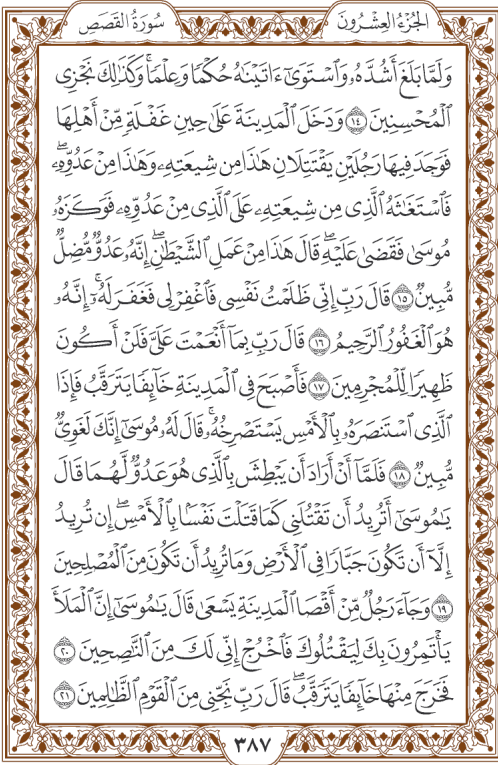 سُورَةُ القَصَصِ
الجُزْءُ العِشْرُونَ
وَلَمَّا بَلَغَ أَشُدَّهُۥ وَٱسۡتَوَىٰٓ ءَاتَيۡنَٰهُ حُكۡمٗا وَعِلۡمٗاۚ وَكَذَٰلِكَ نَجۡزِي
ٱلۡمُحۡسِنِينَ ١٤ وَدَخَلَ ٱلۡمَدِينَةَ عَلَىٰ حِينِ غَفۡلَةٖ مِّنۡ أَهۡلِهَا
فَوَجَدَ فِيهَا رَجُلَيۡنِ يَقۡتَتِلَانِ هَٰذَا مِن شِيعَتِهِۦ وَهَٰذَا مِنۡ عَدُوِّهِۦۖ
فَٱسۡتَغَٰثَهُ ٱلَّذِي مِن شِيعَتِهِۦ عَلَى ٱلَّذِي مِنۡ عَدُوِّهِۦ فَوَكَزَهُۥ
مُوسَىٰ فَقَضَىٰ عَلَيۡهِۖ قَالَ هَٰذَا مِنۡ عَمَلِ ٱلشَّيۡطَٰنِۖ إِنَّهُۥ عَدُوّٞ مُّضِلّٞ
مُّبِينٞ ١٥ قَالَ رَبِّ إِنِّي ظَلَمۡتُ نَفۡسِي فَٱغۡفِرۡ لِي فَغَفَرَ لَهُۥٓۚ إِنَّهُۥ
هُوَ ٱلۡغَفُورُ ٱلرَّحِيمُ ١٦ قَالَ رَبِّ بِمَآ أَنۡعَمۡتَ عَلَيَّ فَلَنۡ أَكُونَ
ظَهِيرٗا لِّلۡمُجۡرِمِينَ ١٧ فَأَصۡبَحَ فِي ٱلۡمَدِينَةِ خَآئِفٗا يَتَرَقَّبُ فَإِذَا
ٱلَّذِي ٱسۡتَنصَرَهُۥ بِٱلۡأَمۡسِ يَسۡتَصۡرِخُهُۥۚ قَالَ لَهُۥ مُوسَىٰٓ إِنَّكَ لَغَوِيّٞ
مُّبِينٞ ١٨ فَلَمَّآ أَنۡ أَرَادَ أَن يَبۡطِشَ بِٱلَّذِي هُوَ عَدُوّٞ لَّهُمَا قَالَ
يَٰمُوسَىٰٓ أَتُرِيدُ أَن تَقۡتُلَنِي كَمَا قَتَلۡتَ نَفۡسَۢا بِٱلۡأَمۡسِۖ إِن تُرِيدُ
إِلَّآ أَن تَكُونَ جَبَّارٗا فِي ٱلۡأَرۡضِ وَمَا تُرِيدُ أَن تَكُونَ مِنَ ٱلۡمُصۡلِحِينَ
١٩ وَجَآءَ رَجُلٞ مِّنۡ أَقۡصَا ٱلۡمَدِينَةِ يَسۡعَىٰ قَالَ يَٰمُوسَىٰٓ إِنَّ ٱلۡمَلَأَ
يَأۡتَمِرُونَ بِكَ لِيَقۡتُلُوكَ فَٱخۡرُجۡ إِنِّي لَكَ مِنَ ٱلنَّٰصِحِينَ ٢٠
فَخَرَجَ مِنۡهَا خَآئِفٗا يَتَرَقَّبُۖ قَالَ رَبِّ نَجِّنِي مِنَ ٱلۡقَوۡمِ ٱلظَّٰلِمِينَ ٢١
٣٨٧